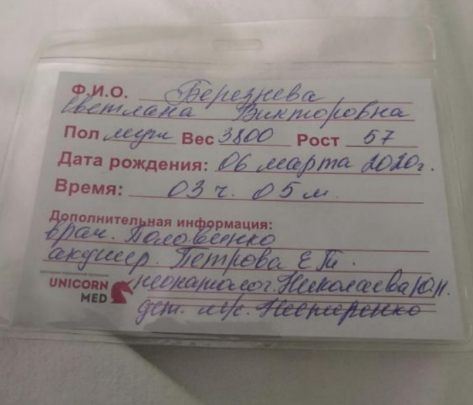 Ф.И.О. Березнева
Светлана Викторовна
Пол муж Вес 3800 Рост 57
Дата рождения: 06 марта 2020г.
Время: 03 ч. 05 м.
Дополнительная информация:
врач. Половинко
акушер. Петрова Е.Т.
неонатолог. Николаева Ю.Н.
дет. м/с. Нестеренко
UNICORN
MED